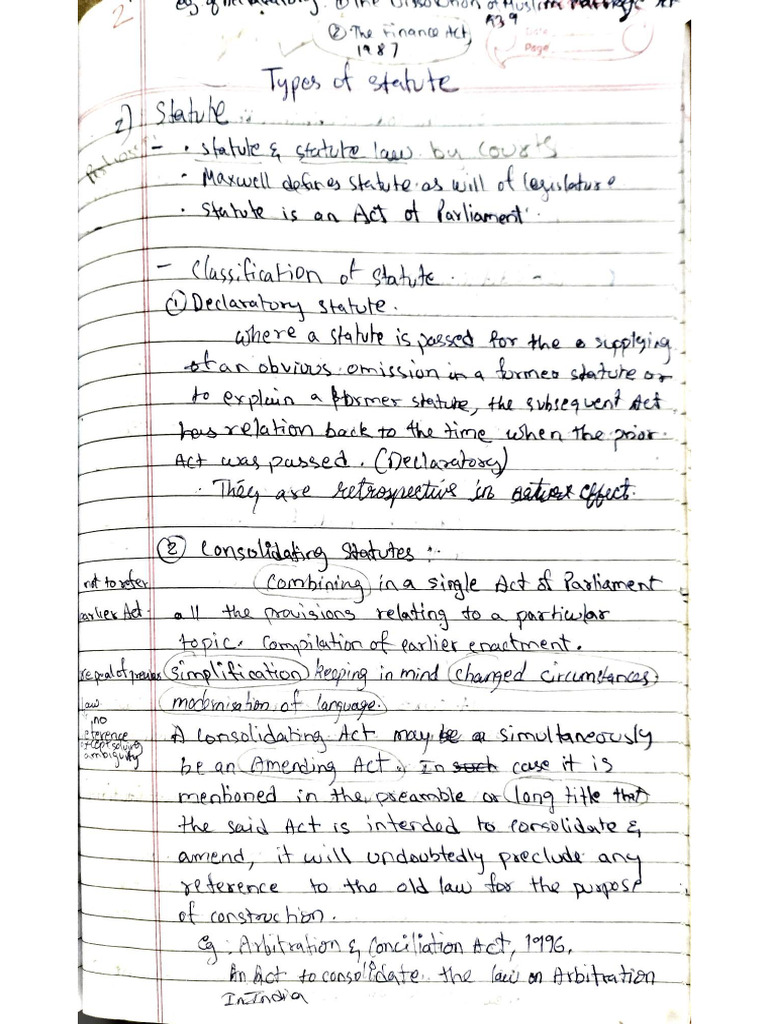 2
eg of Declaratory: ① The Dissolution of Muslim Marriage Act
1939
② The Finance Act,
1987
Date
Page
Types of statute
2) Statute
- • statute & statute law by Courts
• Maxwell defines statute as will of legislature
• Statute is an Act of Parliament.
- Classification of statute.
① Declaratory statute.
where a statute is passed for the supplying
of an obvious omission in a former statute or
to explain a former statute, the subsequent Act
has relation back to the time when the prior
Act was passed. (Declaratory)
• They are retrospective in effect.
② Consolidating Statutes :-
Combining in a single Act of Parliament
all the provisions relating to a particular
topic. Compilation of earlier enactment.
simplification keeping in mind changed circumstances,
modernisation of language.
A Consolidating Act may be simultaneously
be an Amending Act. In such case it is
mentioned in the preamble or long title that
the said Act is intended to consolidate &
amend, it will undoubtedly preclude any
reference to the old law for the purpose
of construction.
Eg: Arbitration & Conciliation Act, 1996,
An Act to consolidate the law on Arbitration
In India
not to refer
earlier Act.
repeal of previous
law
no
eference
except solving
ambiguity